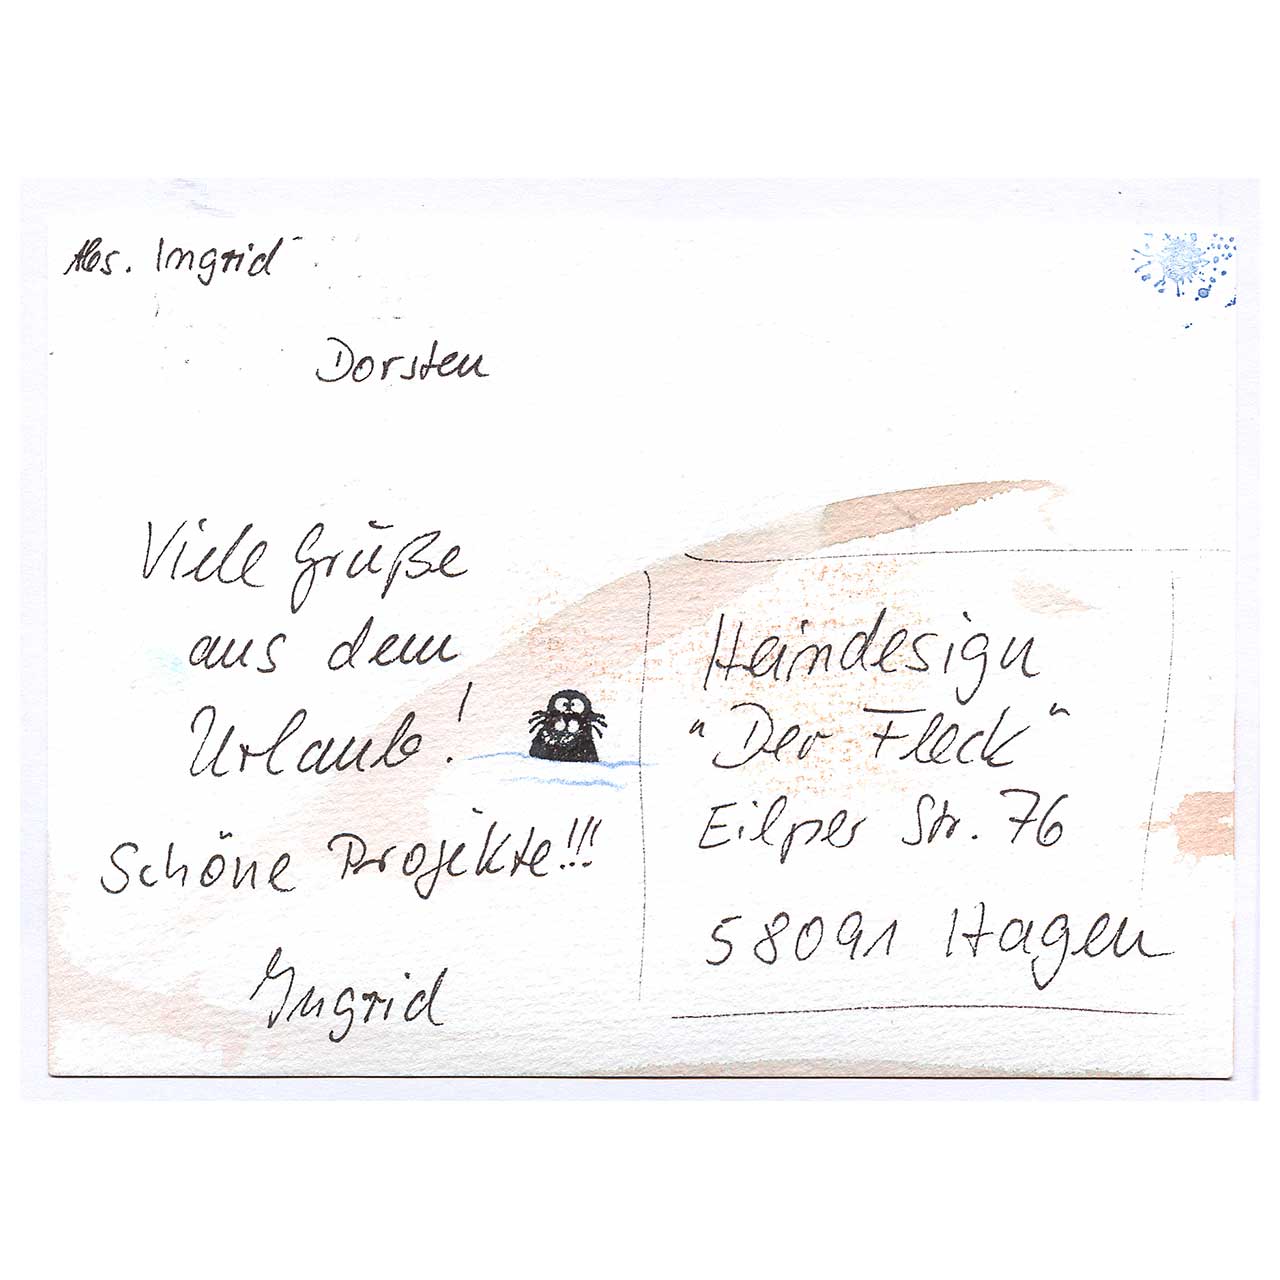 Abs. Ingrid
Dorsten
Viele Grüße
aus dem
Urlaub!
Schöne Projekte!!!
Ingrid
Heindesign
"Der Fleck"
Eilper Str. 76
58091 Hagen